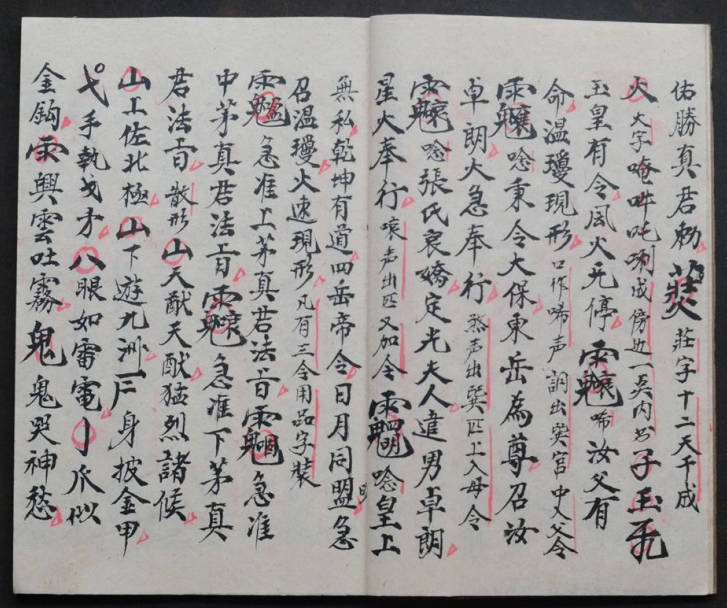 佑勝真君勑 莊字十二天千成
火 火字唵吽吒 成傍边一点内书子玉
玉皇有令風火无停 唏汝父有
命溫瓊現形口作唏声 出 官中人父令
唸東令大保東岳為尊召汝
卓朗火急奉行 声出 匹上入母令
唸張氏哀嬌定光夫人遣男卓朗
星火奉行 声出匹又加令 唸皇上
無私乾坤有道四岳帝令日月同盟急
召溫瓊火速現形凡有三令用品字裝
急准上茅真君法旨 急准
中茅真君法旨 急准下茅真
君法旨散形山天猷天猷猛烈諸侯
山上佐北極山下遊九洲 身披金甲
弋手執戈矛八眼如雷電亅爪似
金鈎 興雲吐霧鬼鬼哭神愁